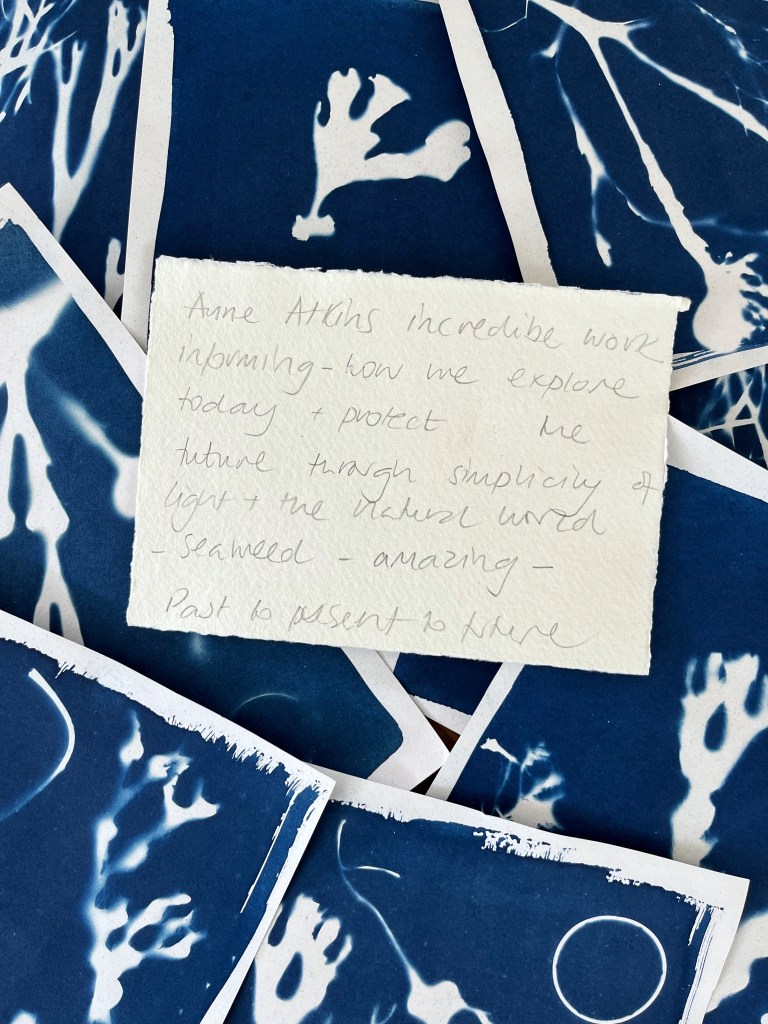 Anne Atkins incredibe work
informing - how we explore
today + protect the
future through simplicity of
light + the natural world
- seaweed - amazing -
Past to present to future